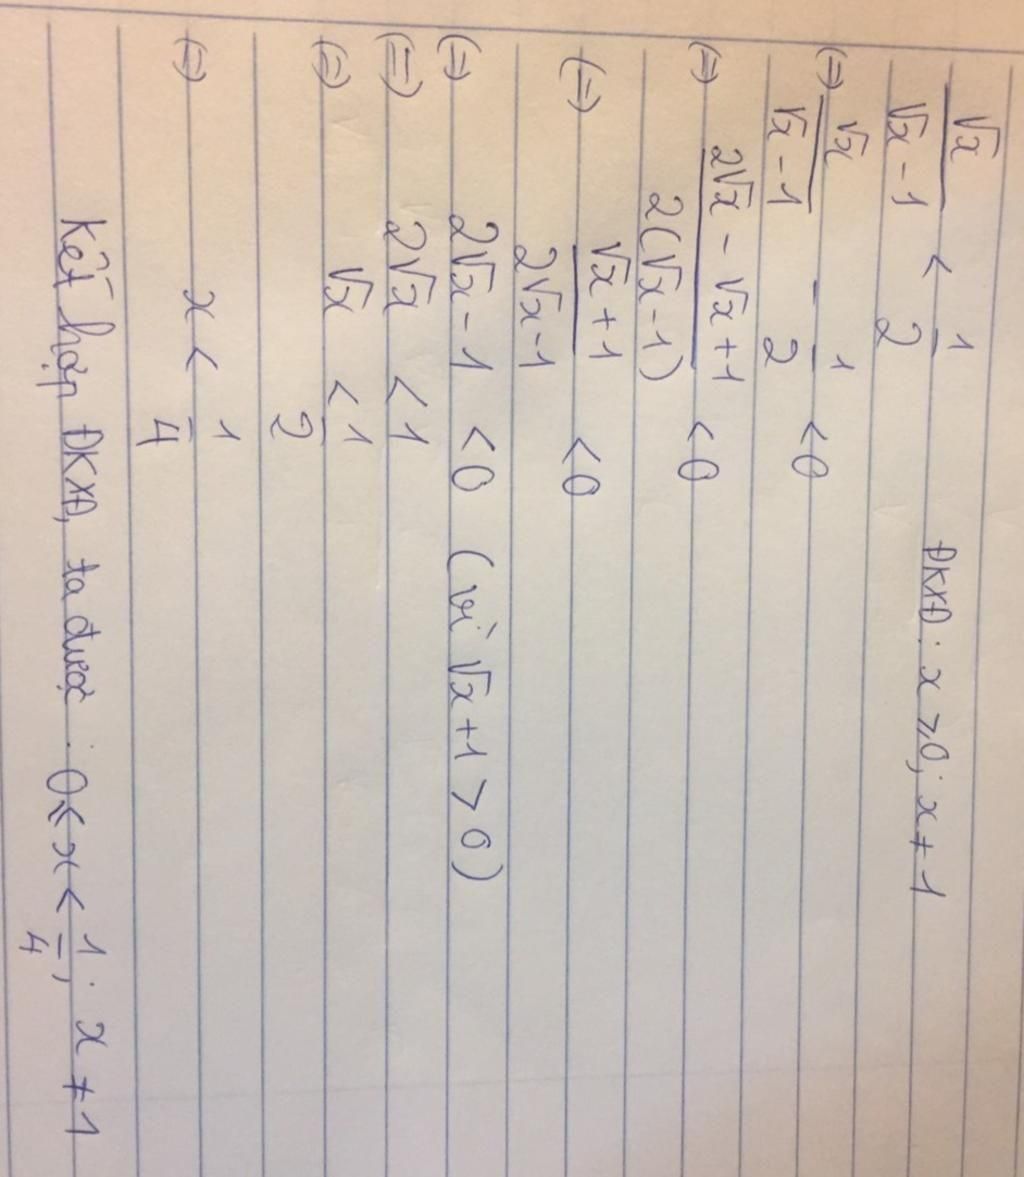 √x / (√x - 1) < 1/2 ĐKXĐ: x ⩾ 0; x ≠ 1
(=) √x / (√x - 1) - 1/2 < 0
(=) (2√x - √x + 1) / (2(√x - 1)) < 0
(=) (√x + 1) / (2√x - 1) < 0
(=) 2√x - 1 < 0 (vì √x + 1 > 0)
(=) 2√x < 1
(=) √x < 1/2
(=) x < 1/4
Kết hợp ĐKXĐ, ta được: 0 ⩽ x < 1/4; x ≠ 1